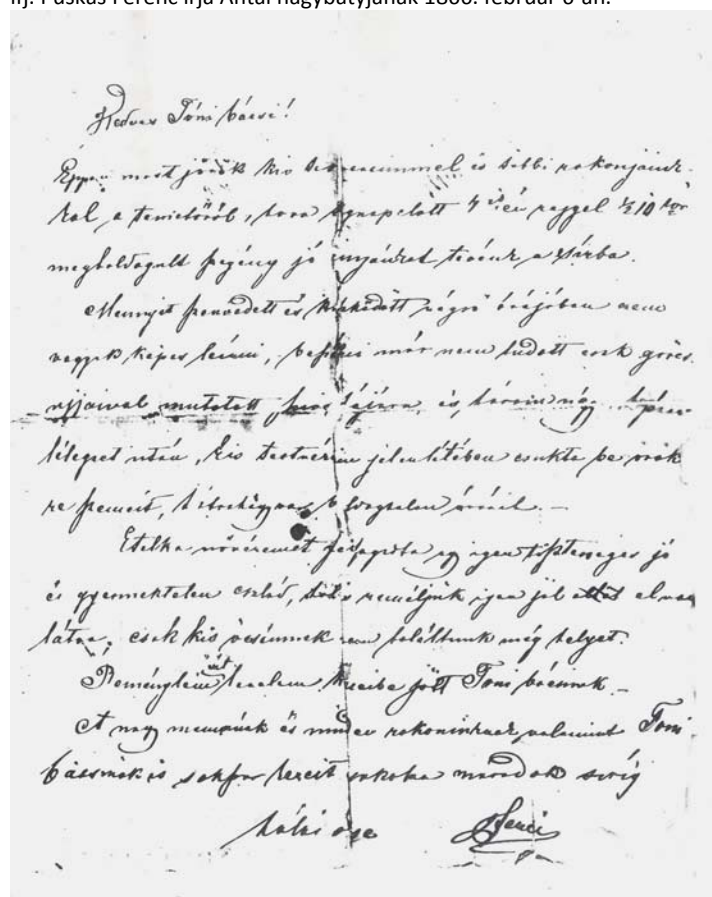 Ifj. Puskás Ferenc írja Antal nagybátyjának 1866. február 6-án:
Kedves Tóni bácsi!
Éppen most jövök kis testvéreimmel és több rokonjaink-
kal a temetőről, hova tegnapelőtt 4 én reggel ½10 kor
megboldogult szegény jó anyánkat tevénk a sírba.
Mennyit szenvedett és küzködött végső órájában nem
vagyok képes leírni, beszélni már nem tudott csak görcs
ujjaival mutatott szájára és három nagy
lélegzet után, kis testvéreim jelenlétében csukta be örök
re szemeit,
Etelka nővéremet felfogadta egy igen tisztességes jó
és gyermektelen család, hol is reméljük igen jól el van
látva, csak kis öcsémnek nem találtunk még helyet.
Reménylem levelem kezeibe jött Toni bácsinak –
A nagy mamának és minden rokoninknak, valamint Toni
bácsinak is sokszor kezeit csókolva maradok sírig
hálás öcse Ferci